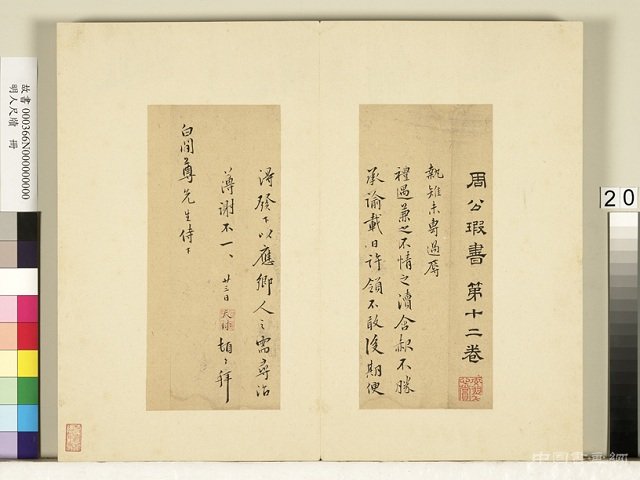 周公瑕書 第十二卷
執雉未專過辱
禮遇兼之不情之瀆含赧不勝
承諭載日許領不敢後期便
得發下以應鄉人之需尋沽
薄謝不一、廿三日 天球 頓、拜
白閒尊先生侍下
故書 000366N000000000
明人尺牘 冊
20
中国書画網